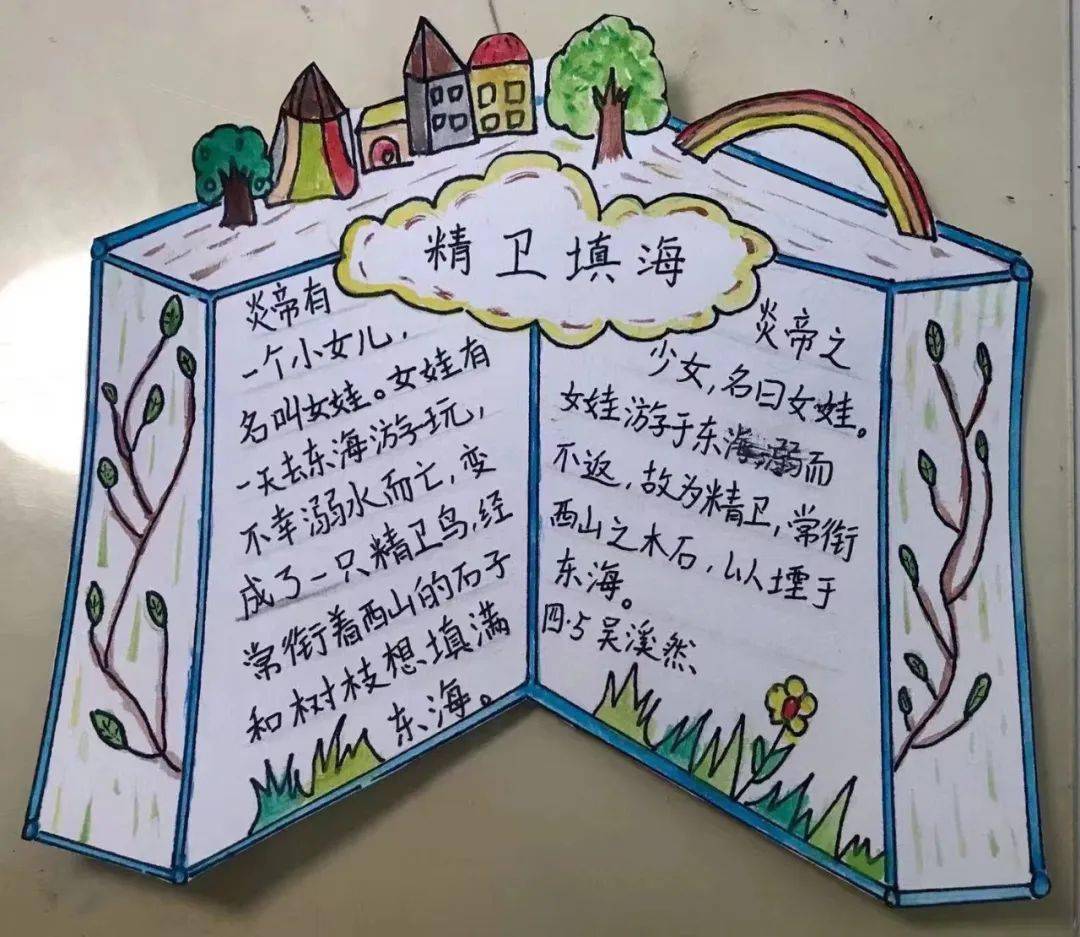 精卫填海
炎帝有
一个小女儿，
名叫女娃。女娃有
一天去东海游玩，
不幸溺水而亡，变
成了一只精卫鸟，经
常衔着西山的石子
和树枝想填满
东海。
炎帝之
少女，名曰女娃。
女娃游于东海，溺而
不返，故为精卫，常衔
西山之木石，以堙于
东海。
四·5 吴溪然